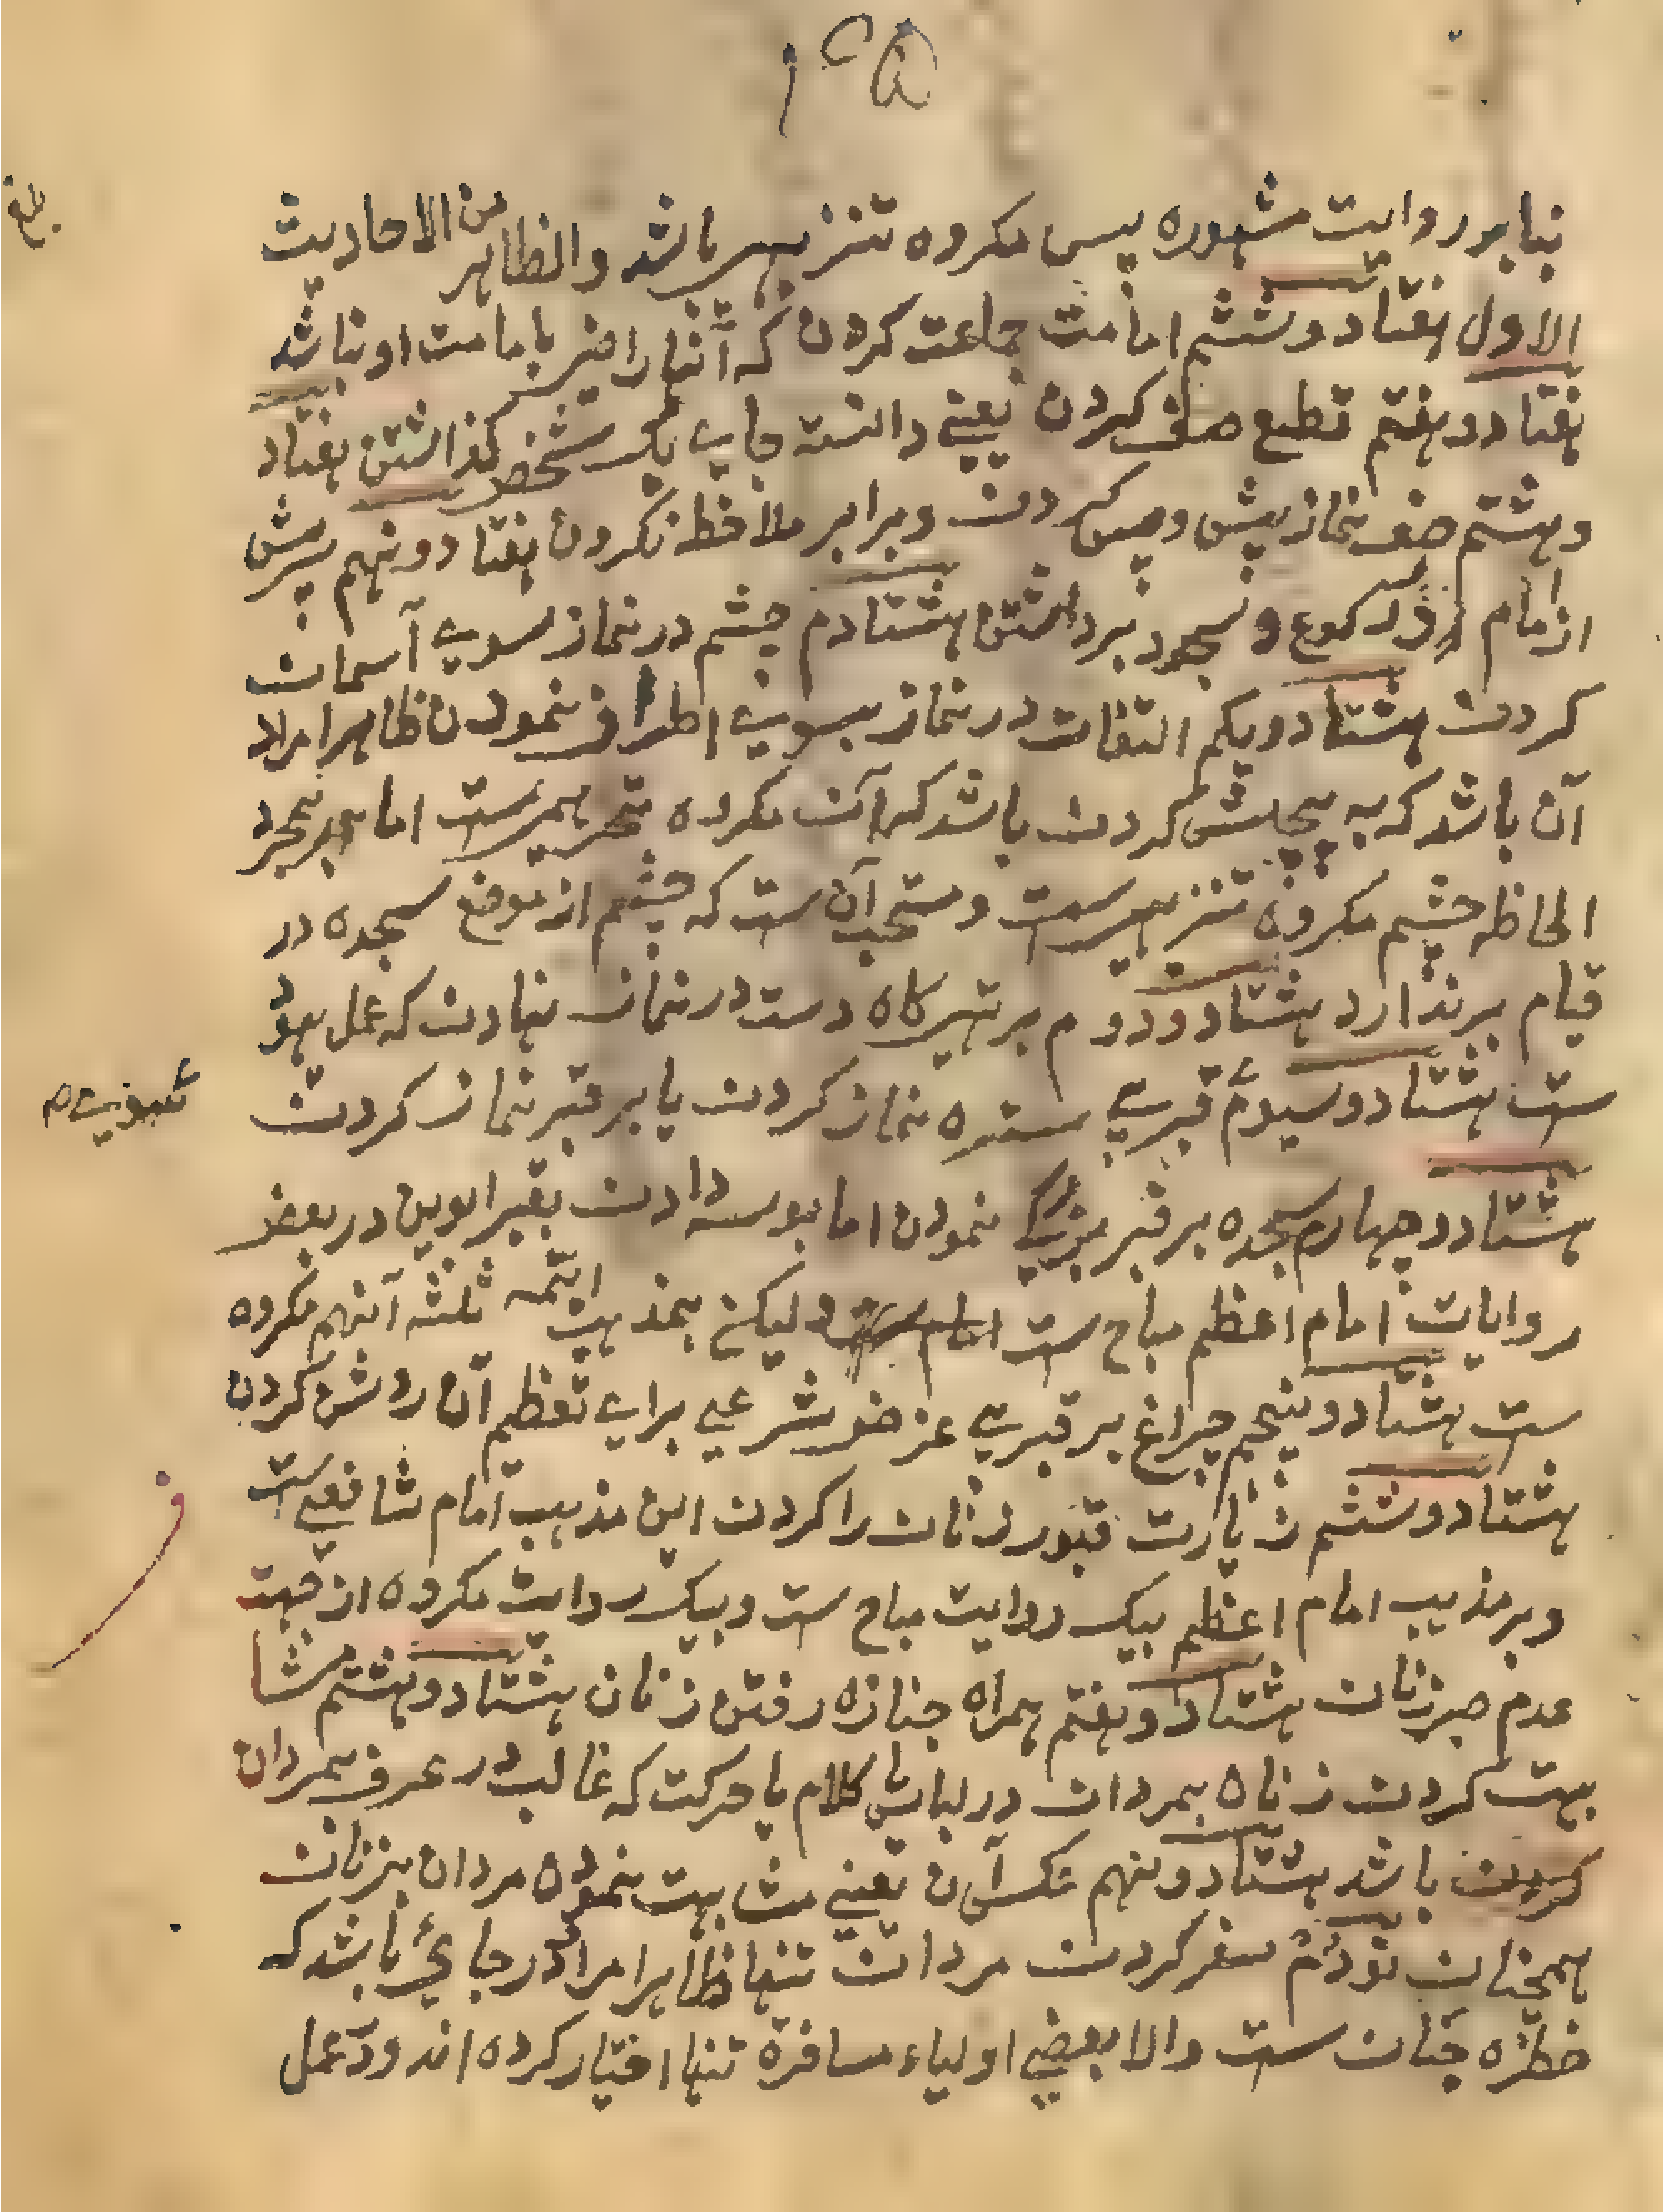 ۱۴۵
بنابر روایت مشهوره پس مکروه تنزیهی باشد والظاهر من الاحادیث
الاول هفتاد و ششم امامت جماعت کردن که آنها راضی بامامت او نباشد
هفتاد و هفتم قطع صف کردن یعنی دانسته جای یک شخص گذاشتن هفتاد
و هشتم صف نماز پیش و پس کردن و برابر ملاحظه نکردن هفتاد و نهم سر پیش
از امام از رکوع و سجود برداشتن هشتادم چشم در نماز سوی آسمان
کردن هشتاد و یکم التفات در نماز بسوی اطراف نمودن ظاهرا مراد
آن باشد که به پیچش کردن باشد که آن مکروه تحریمی ست اما بمجرد
الحاظه چشم مکروه تنزیهی ست و مستحب آن ست که چشم از موضع سجده در
قیام برندارد هشتاد و دوم بر تهیگاه دست در نماز نهادن که عمل یهود
ست هشتاد و سیوم قبری ستره نماز کردن یا بر قبر نماز کردن
بسوی
هشتاد و چهارم سجده بر قبر بزرگی نمودن اما بوسه دادن بقبر ابوین در بعض
روایات امام اعظم مباح ست ولیکن بمذهب ائمه ثلثه آنهم مکروه
ست هشتاد و پنجم چراغ بر قبر بی غرض شرعی برای تعظیم آن روشن کردن
هشتاد و ششم زیارت قبور زنان را کردن این مذهب امام شافعی ست
ف
و بر مذهب امام اعظم بیک روایت مباح ست و بیک روایت مکروه از جهت
عدم صبر زنان هشتاد و هفتم همراه جنازه رفتن زنان هشتاد و هشتم مشا
بهت کردن زنان بمردان در لباس یا کلام یا حرکت که غالب در عرف بمردان
باشد هشتاد و نهم عکس آن یعنی مشابهت نمودن مردان بزنان
همچنان نودم سفر کردن مردان تنها ظاهرا مراد در جائ باشد که
خطره چنان ست والا بعضی اولیاء مسافرة تنها اختیار کرده اند و عمل